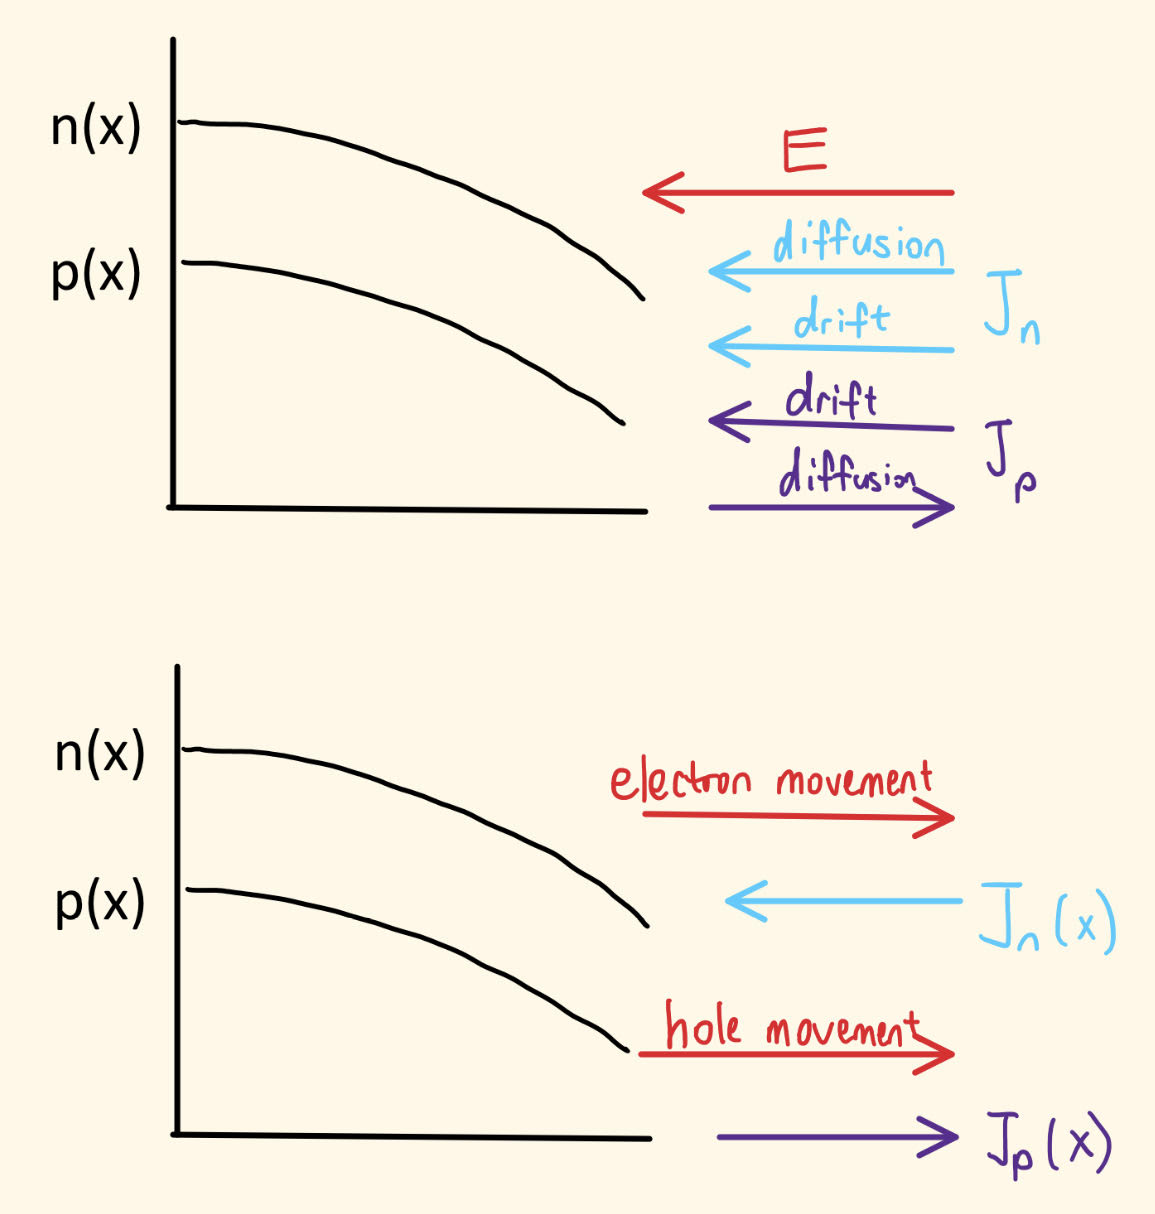 n(x)
E
p(x)
diffusion
drift
J_n
drift
diffusion
J_p
n(x)
electron movement
p(x)
J_n(x)
hole movement
J_p(x)